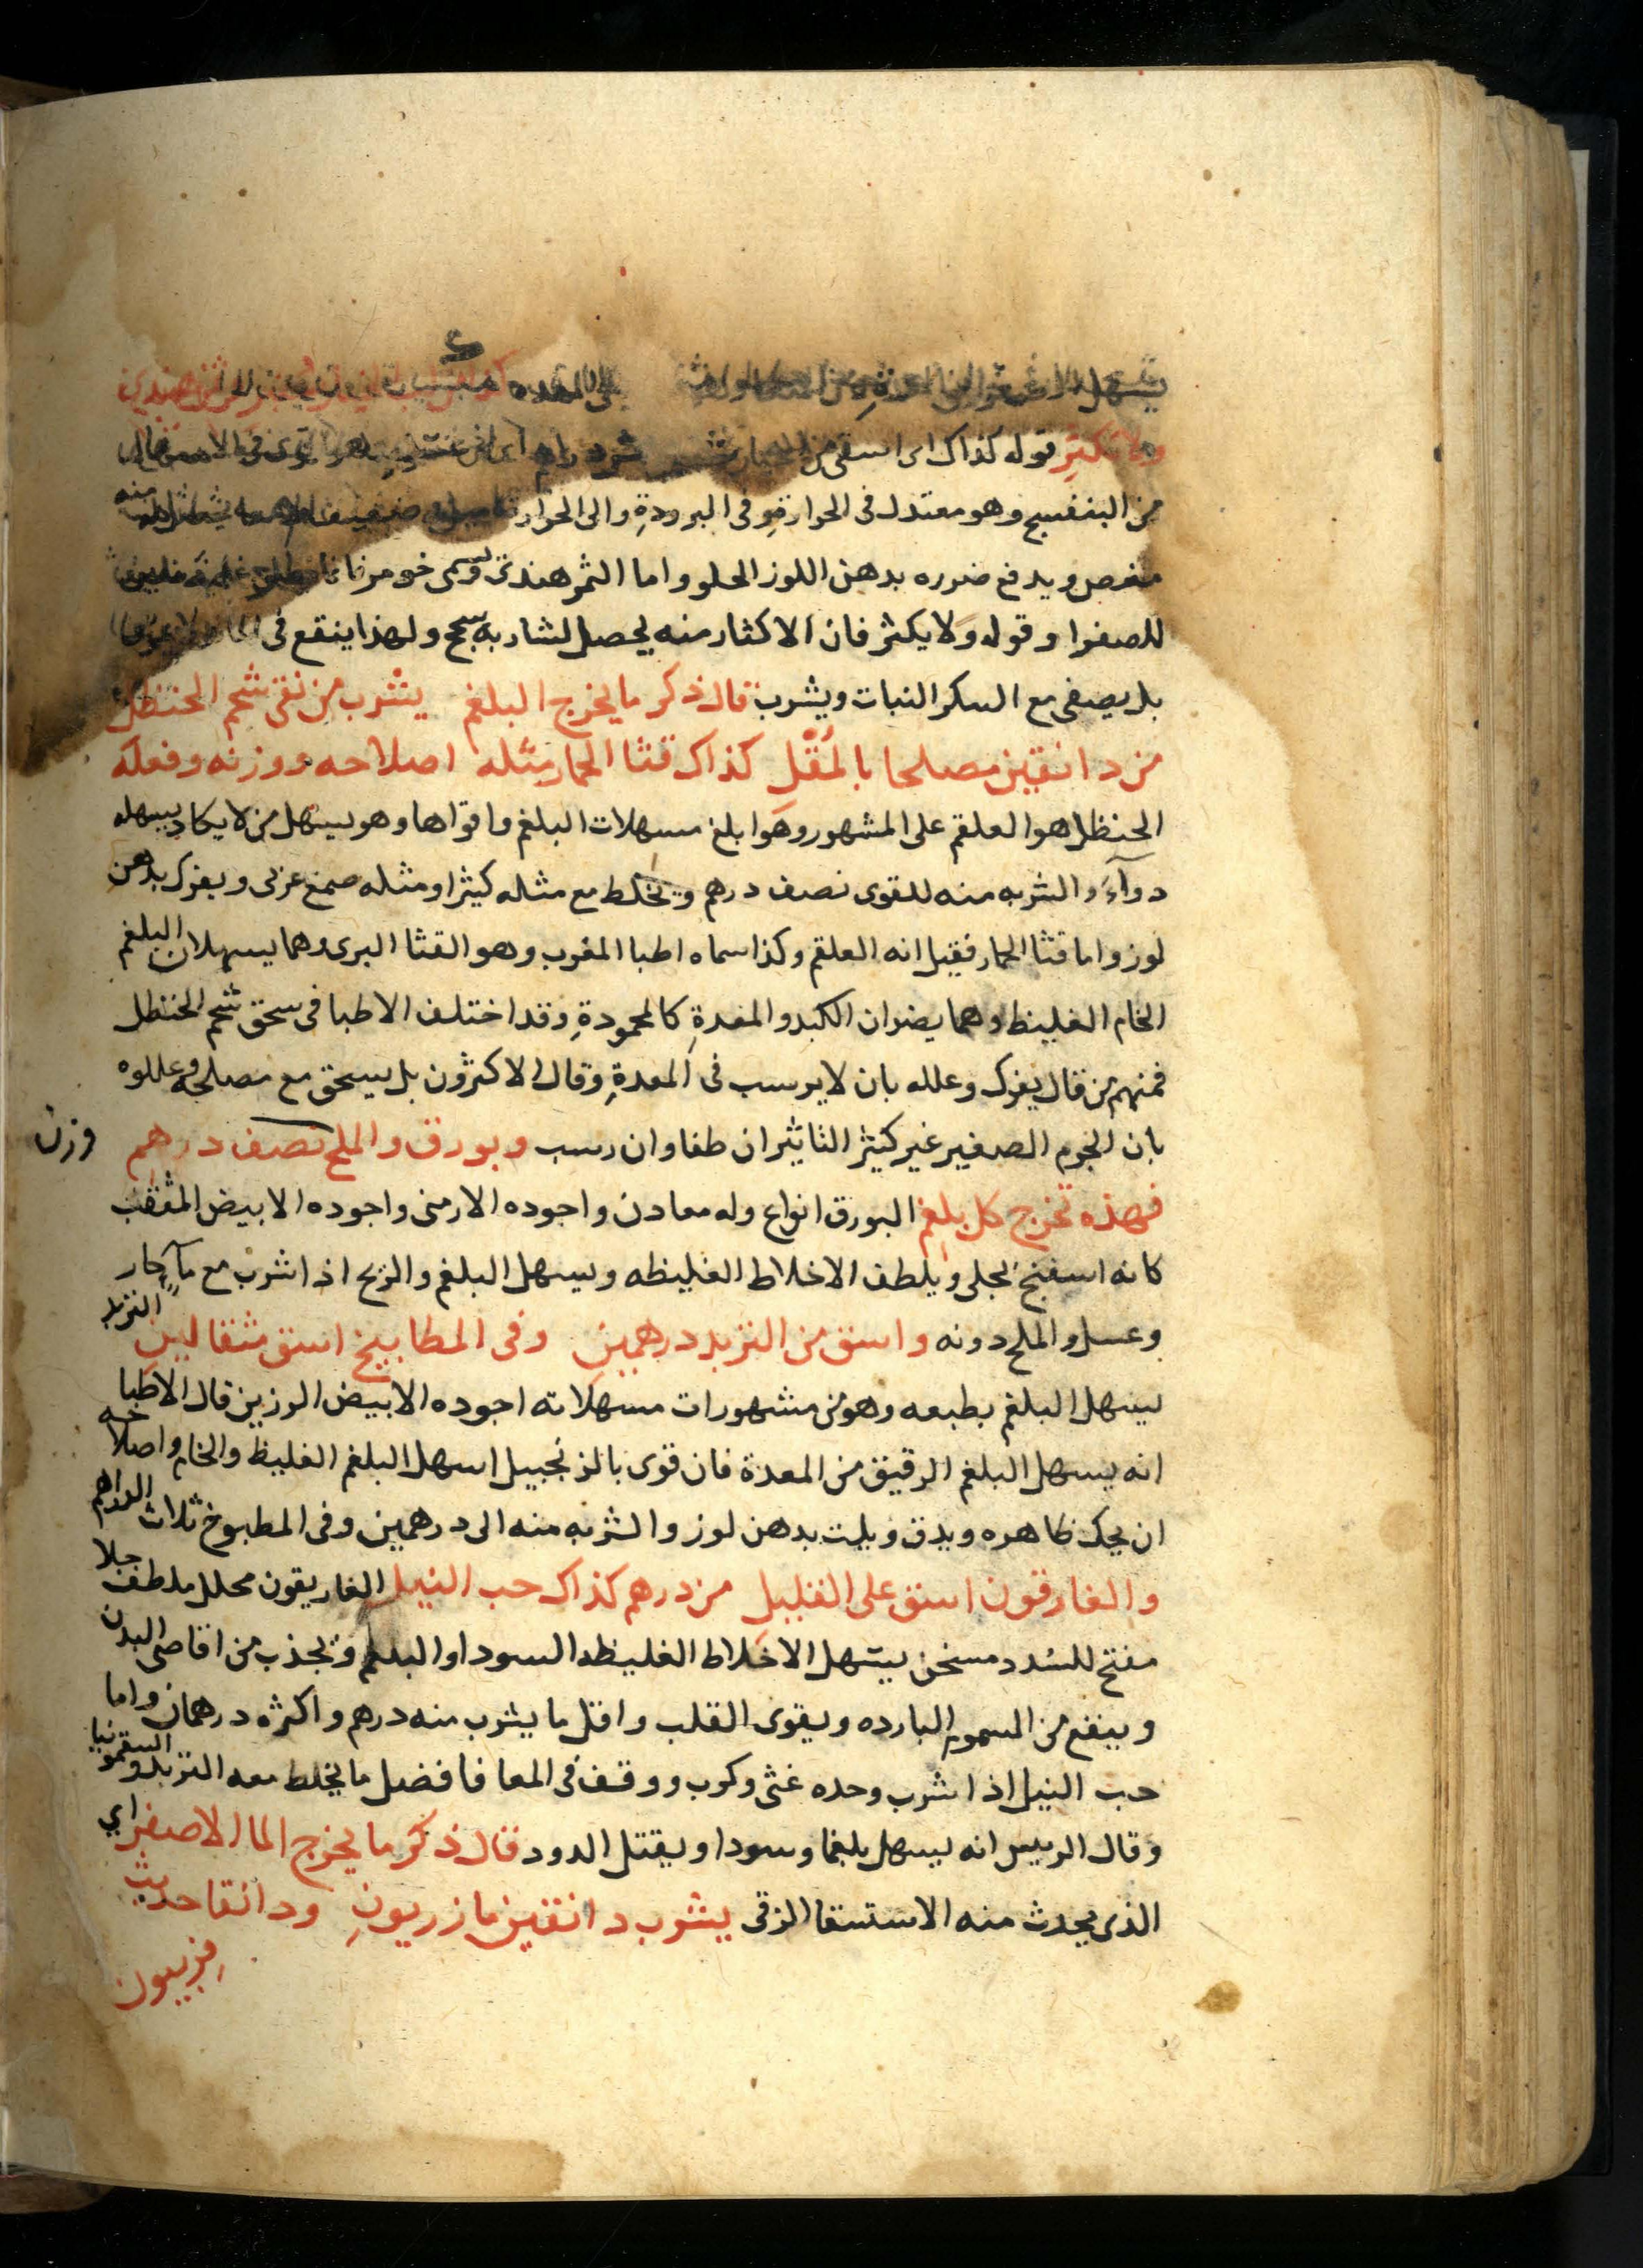 ولا تكثر قوله كذاك اى اسقى من
من البنفسج وهو معتدل فى الحرارة وفى البرودة والى الحرار
مغص ويدفع ضرره بدهن اللوز الحلو واما الثمر هندى
للصفرا وقوله ولا يكثر فان الاكثار منه يحصل لشاربه سحج ولهذا ينقع فى
بل يصفى مع السكر النبات ويشرب قال ذكر ما يخرج البلغم يشرب من نقى شحم الحنظل
من دانقين مصلحا بالمقل كذاك قثا الحمار مثله اصلاحه ووزنه وفعله
الحنظل هو العلقم على المشهور وهو ابلغ مسهلات البلغم واقواها وهو يسهل من لا يكاد يسهله
دوآء والشربه منه للقوى نصف درهم ويخلط مع مثله كثيرا ومثله صمغ عربى ويفرك بدهن
لوز واما قثا الحمار فقيل انه العلقم وكذا سماه اطبا المغرب وهو القثا البرى وهما يسهلان البلغم
الخام الغليظ وهما يضران الكبد والمعدة كالمحمودة وقد اختلف الاطبا فى سحق شحم الحنظل
فمنهم من قال يفرك وعلله بان لا يرسب فى المعدة وقال الاكثرون بل يسحق مع مصلحه وعللوه
بان الجرم الصغير غير كثير التاثير ان طفا وان رسب وبورق والملح نصف درهم وزن
فهذه تخرج كل بلغم البورق انواع وله معادن واجوده الارمنى واجوده الابيض المثقب
كانه اسفنج يجلى ويلطف الاخلاط الغليظه ويسهل البلغم والريح اذا شرب مع مآ حار
وعسل والملح دونه واسق من التربد درهمين وفى المطابيخ اسق مثقالين التربد
يسهل البلغم بطبعه وهو من مشهورات مسهلاته اجوده الابيض الرزين قال الاطبا
انه يسهل البلغم الرقيق من المعدة فان قوى بالزنجبيل اسهل البلغم الغليظ والخام واصلاحه
ان يحك ظاهره ويدق ويلت بدهن لوز والشربه منه الى درهمين وفى المطبوخ ثلاث الدراهم
والغارقون اسق على القليل من درهم كذاك حب النيل الغاريقون محلل ملطف جلا
مفتح للسدد مسخن يسهل الاخلاط الغليظه السودا والبلغم ويجذب من اقاصى البدن
وينفع من السموم البارده ويقوى القلب واقل ما يشرب منه درهم واكثره درهمان واما
حب النيل اذا شرب وحده غثى وكرب ووقف فى المعا فافضل ما يخلط معه التربد والسقمونيا
وقال الرييس انه يسهل بلغما وسودا ويقتل الدود قال ذكر ما يخرج الما الاصفر اي
الذى يحدث منه الاستسقا الزقى يشرب دانقين مازريون ودانقا حديث
فربيون